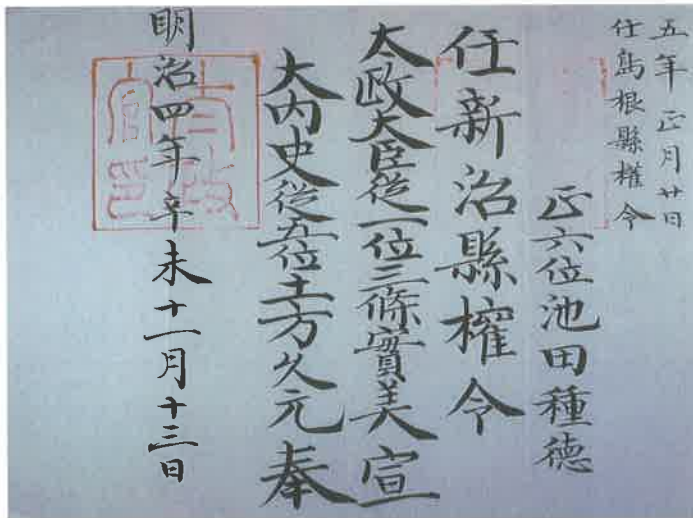 五年正月廿日
任島根縣權令
正六位池田種德
任新治縣權令
太政大臣從一位三條實美宣
大內史從五位土方久元奉
明治四年辛未十一月十三日
太政官印